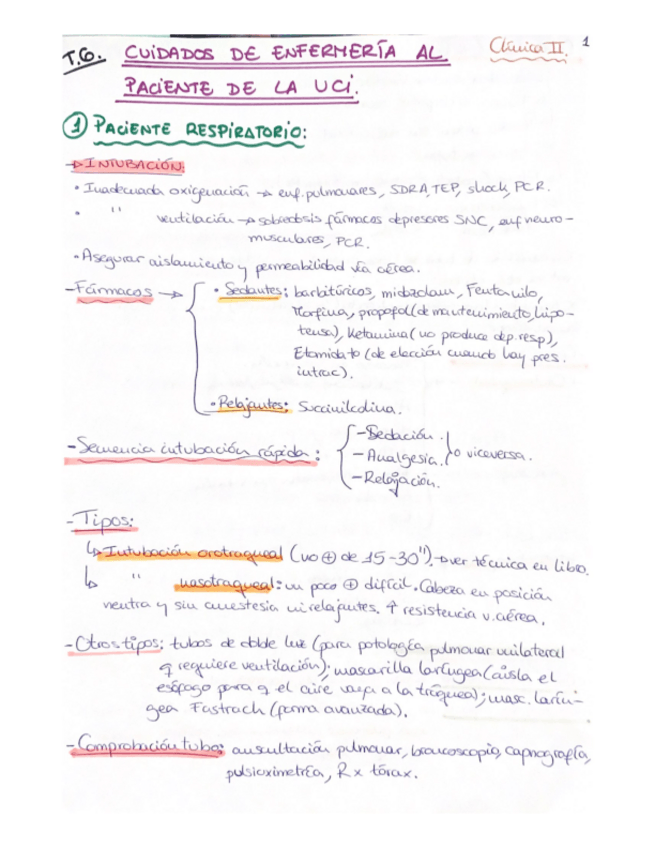 T.6. CUIDADOS DE ENFERMERÍA AL
Clínica II. 1
PACIENTE DE LA UCI.
① PACIENTE RESPIRATORIO:
→ INTUBACIÓN:
• Inadecuada oxigenación → enf. pulmonares, SDRA, TEP, shock, PCR.
• " ventilación → sobredosis fármacos depresores SNC, enf neuro-
musculares, PCR.
• Asegurar aislamiento y permeabilidad vía aérea.
- Fármacos → • Sedantes: barbitúricos, midazolam, Fentanilo,
Morfina, propofol (de mantenimiento, hipo-
tensa), Ketamina (no produce dep. resp),
Etomidato (de elección cuando hay pres.
intrac).
• Relajantes: Succinilcolina.
- Secuencia intubación rápida:
- Sedación.
- Analgesia. o viceversa.
- Relajación.
- Tipos:
↳ Intubación orotraqueal (no ⊕ de 15-30''). → ver técnica en libro.
↳ " nasotraqueal: un poco ⊕ difícil. Cabeza en posición
neutra y sin anestesia ni relajantes. ↑ resistencia v. aérea.
- Otros tipos: tubos de doble luz (para patología pulmonar unilateral
q requiere ventilación); mascarilla laríngea (aísla el
esófago para q el aire vaya a la tráquea); masc. larín-
gea Fastrach (forma avanzada).
- Comprobación tubo: auscultación pulmonar, broncoscopio, capnografía,
pulsioximetría, Rx tórax.